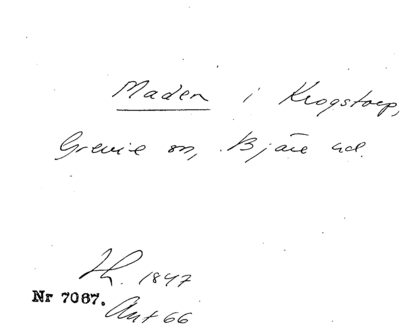 Maden i Krogstorp,
Grevie sn, Bjäre hd.
Lh. 1847
Nr 7067.
Ant 66